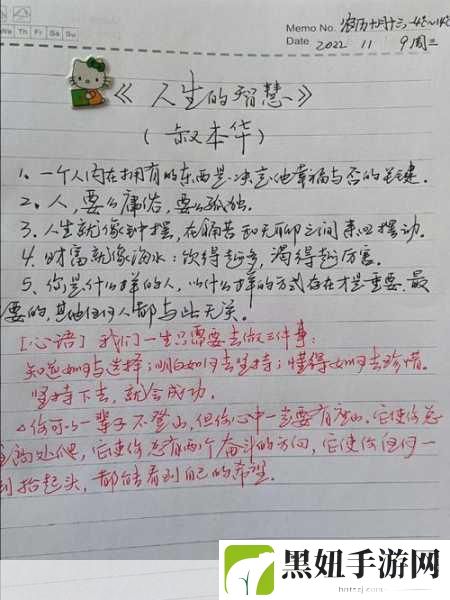 We Th Fr Sa Su
Memo No. 农历十月十六
Date 2022 11 9周三
《人生的智慧》
(叔本华)
1、一个人内在拥有的东西是决定他幸福与否的关键.
2、人,要么庸俗,要么孤独.
3、人生就像钟摆,在痛苦和无聊之间来回摆动.
4、财富就像海水:饮得越多,渴得越厉害.
5、你是什么样的人,以什么样的方式存在才是重要、最
要的,其他任何人都与此无关.
[心语]我们一生只需要去做三件事:
知道如何去选择;明白如何去坚持;懂得如何去珍惜.
坚持下去,就会成功.
△你可以一辈子不登山,但你心中一定要有座山.它使你总
往高处爬,它使你总有两个奋斗的方向,它使你任何一
刻抬起头,都能看到自己的希望.
黑妞手游网
hntzsyj.com